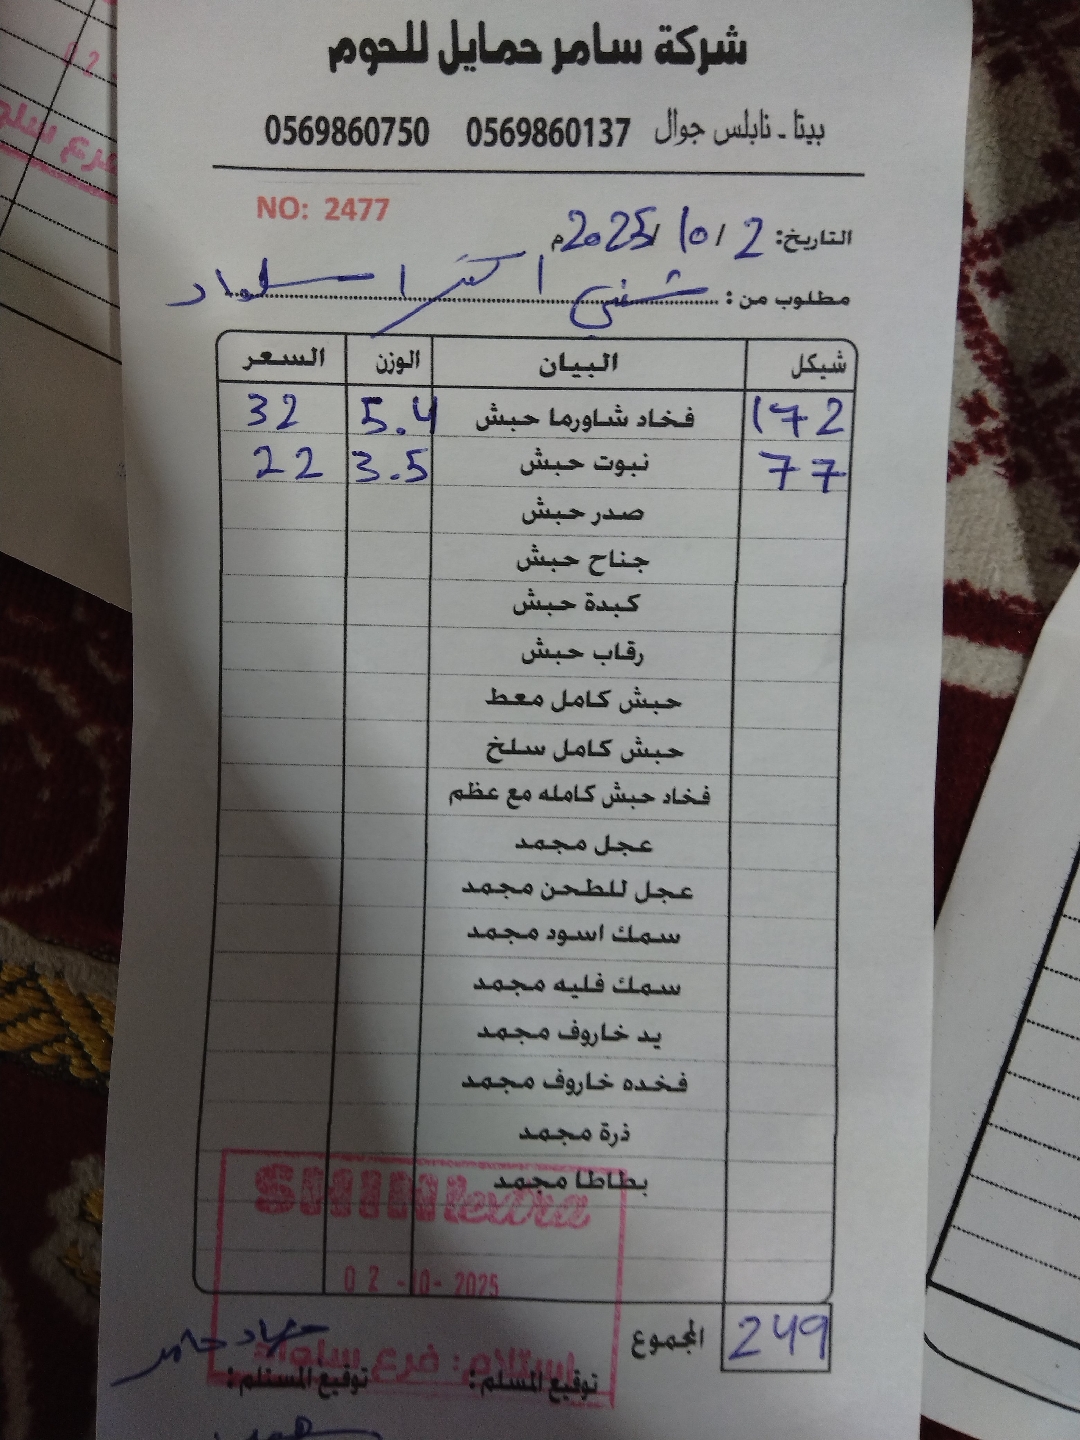 شركة سامر حمايل للحوم
بيتا - نابلس جوال 0569860137 0569860750
NO: 2477
التاريخ: 2 / 10 / 2025م
مطلوب من : شني اكسترا سلواد
شيكل البيان الوزن السعر
172 فخاد شاورما حبش 5.4 32
77 نبوت حبش 3.5 22
صدر حبش
جناح حبش
كبدة حبش
رقاب حبش
حبش كامل معط
حبش كامل سلخ
فخاد حبش كامله مع عظم
عجل مجمد
عجل للطحن مجمد
سمك اسود مجمد
سمك فليه مجمد
يد خاروف مجمد
فخده خاروف مجمد
ذرة مجمد
بطاطا مجمد
SHINI extra
02 -10- 2025
المجموع 249
استلام : فرع سلواد
توقيع المسلم : توقيع المستلم :